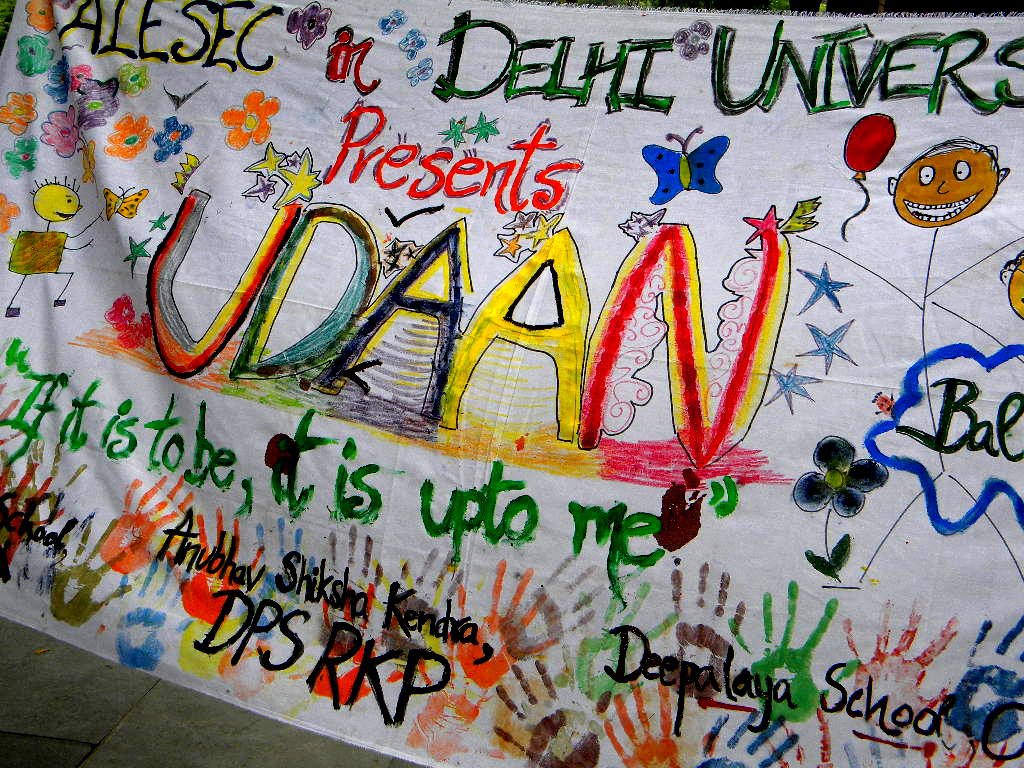 AIESEC in DELHI UNIVERS
Presents
UDAAN
"If it is to be, it is upto me"
Bal
School,
Anubhav Shiksha Kendra,
DPS RKP
Deepalaya School